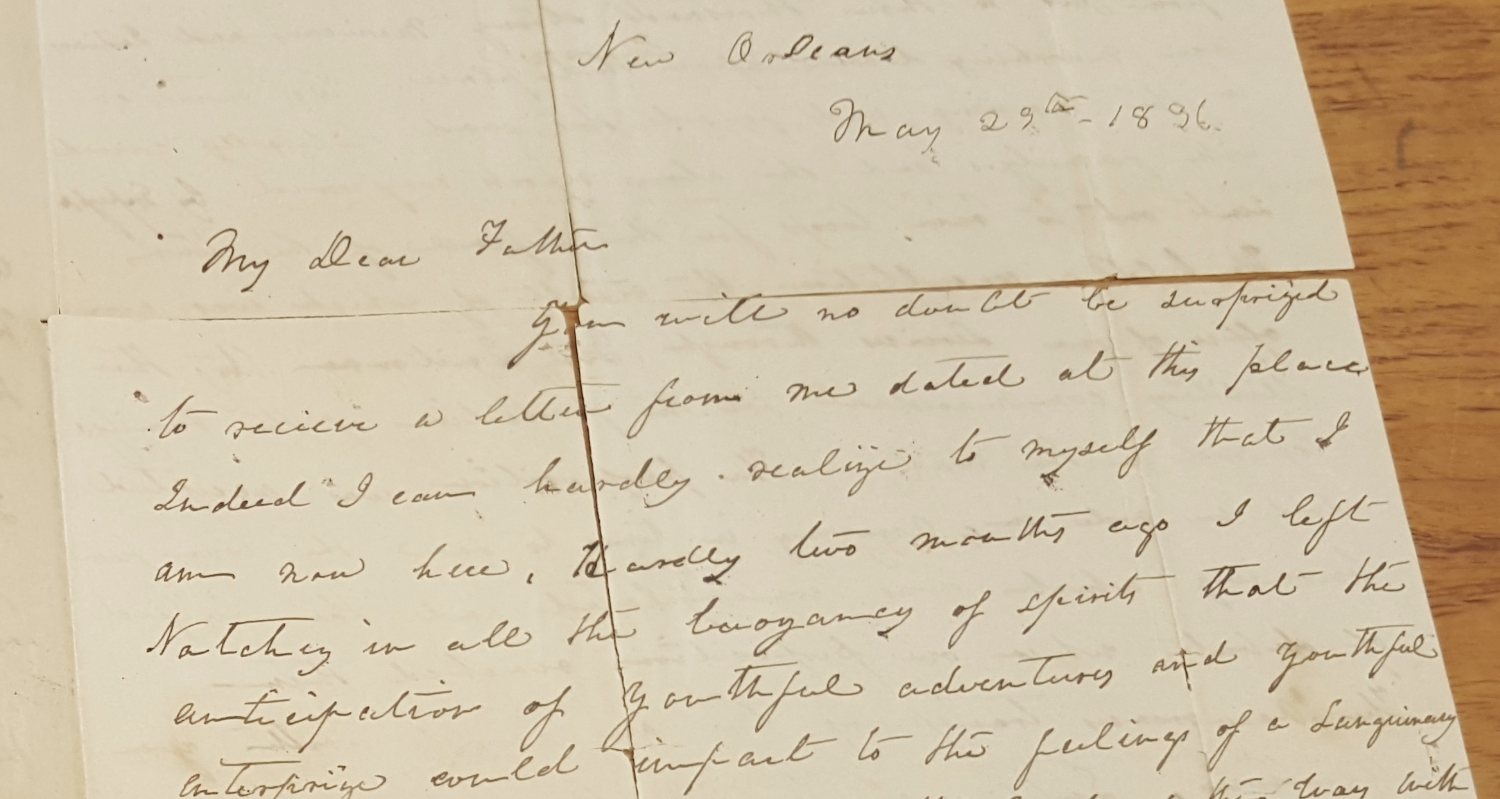 New Orleans
May 29th - 1836.
My Dear Father
You will no doubt be surprized
to recieve a letter from me dated at this place
Indeed I can hardly realize to myself that I
am now here, Hardly two months ago I left
Natchez in all the buoyancy of spirits that the
anticipation of youthful adventures and youthful
enterprize could impart to the feelings of a Sanguinary
the way with